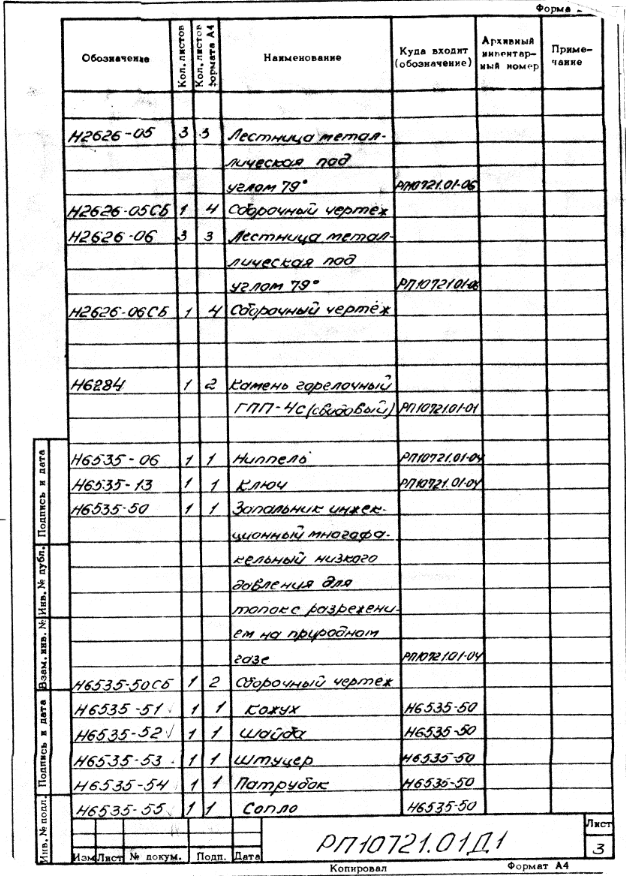 Форма
Обозначение Кол. листов Кол. листов формата А4 Наименование Куда входит (обозначение) Архивный инвентарный номер Примечание
Н2626-05 3 3 Лестница метал-
лическая под
углом 79° РП10721.01-06
Н2626-05СБ 1 4 Сборочный чертеж
Н2626-06 3 3 Лестница метал-
лическая под
углом 79° РП10721.01-06
Н2626-06СБ 1 4 Сборочный чертеж
Н6284 1 2 Камень горелочный
ГПП-4с (сводовый) РП10721.01-01
Н6535-06 1 1 Ниппель РП10721.01-04
Н6535-13 1 1 Ключ РП10721.01-04
Н6535-50 1 1 Запальник инжек-
ционный многофа-
кельный низкого
давления для
топок с разрежени-
ем на природном
газе РП10721.01-04
Н6535-50СБ 1 2 Сборочный чертеж
Н6535-51 1 1 Кожух Н6535-50
Н6535-52 1 1 Шайба Н6535-50
Н6535-53 1 1 Штуцер Н6535-50
Н6535-54 1 1 Патрубок Н6535-50
Н6535-55 1 1 Сопло Н6535-50
Подпись и дата
Инв. № публ.
Взам. инв. №
Подпись и дата
Инв. № подл.
РП10721.01Д1
Лист
3
Изм Лист № докум. Подп. Дата
Копировал Формат А4